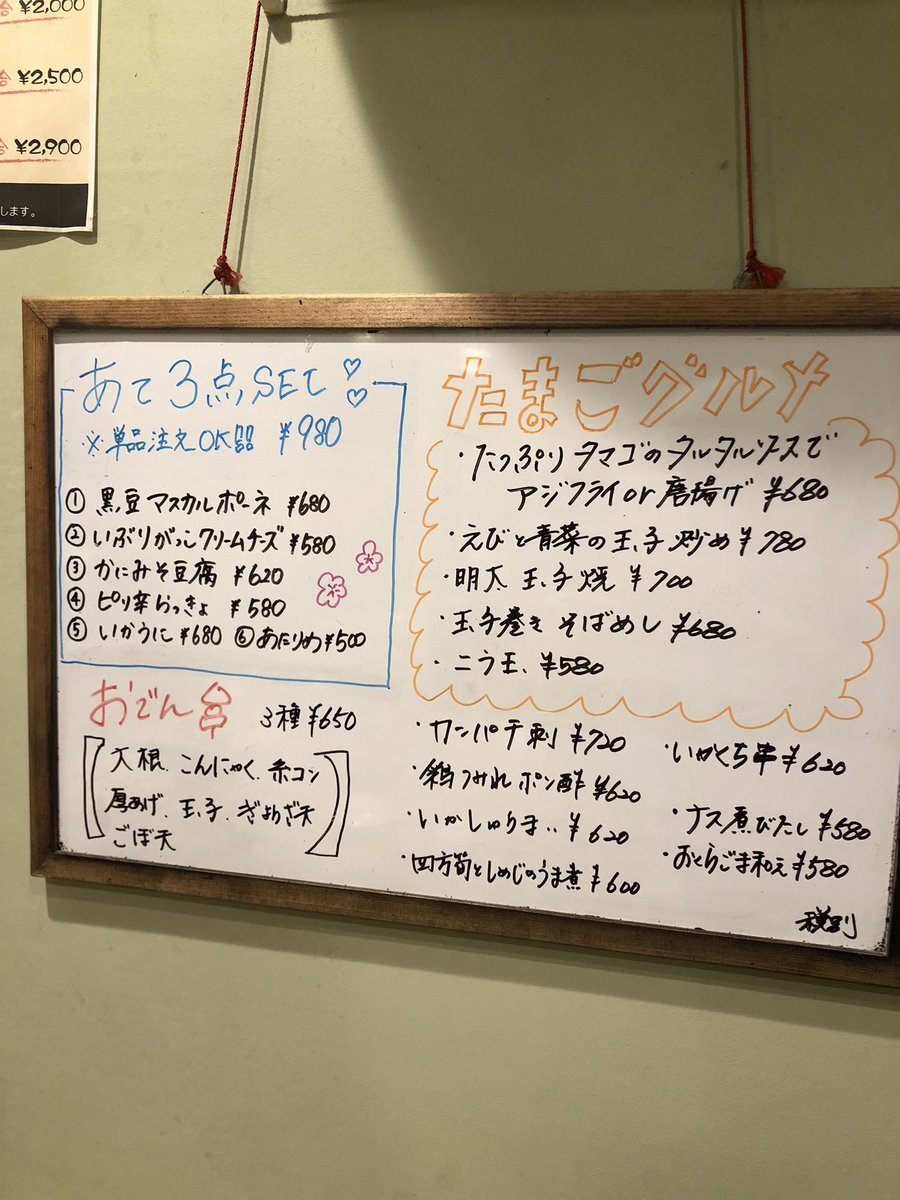 ¥2,000
¥2,500
¥2,900
します。
あて3点SET
※単品注文OK ¥980
① 黒豆マスカルポーネ ¥680
② いぶりがっこクリームチーズ ¥580
③ かにみそ豆腐 ¥620
④ ピリ辛らっきょ ¥580
⑤ いかうに ¥680 ⑥ あたりめ ¥500
おでん
3種 ¥650
大根、こんにゃく、糸コン
厚あげ、玉子、ぎょうざ天
ごぼ天
たまごグルメ
・たっぷりタマゴのタルタルソースで
アジフライor唐揚げ ¥680
・えびと青菜の玉子炒め ¥780
・明太玉子焼 ¥700
・玉子巻きそばめし ¥680
・ニラ玉 ¥580
・カンパチ刺 ¥720
・鶏つみれポン酢 ¥620
・いかしゅうまい ¥620
・四方筍としめじのうま煮 ¥600
・いかくち串 ¥620
・ナス煮びたし ¥580
・おくらごま和え ¥580
税別